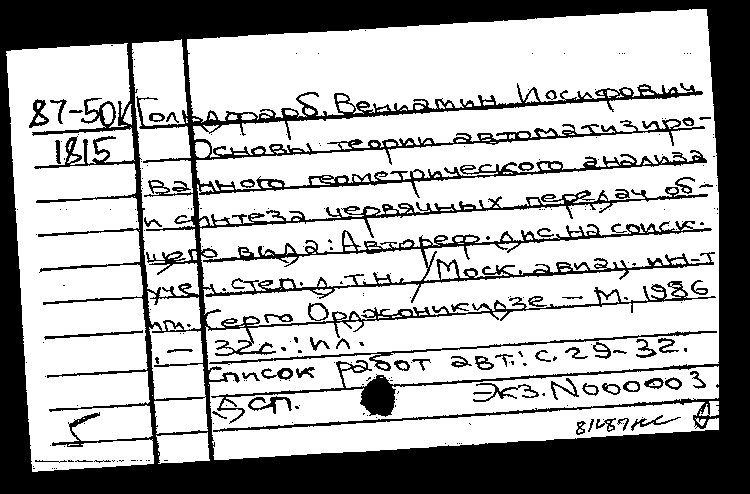 87-50К Гольдфарб, Вениамин Иосифович
1815 Основы теории автоматизиро-
ванного геометрического анализа
и синтеза червячных передач об-
щего вида: Автореф. дис. на соиск.
учен. степ. д.т.н. / Моск. авиац. ин-т
им. Серго Орджоникидзе. - М., 1986
. - 32с.: ил.
Список работ авт.: с. 29-32.
Дсп. Экз. N000003.